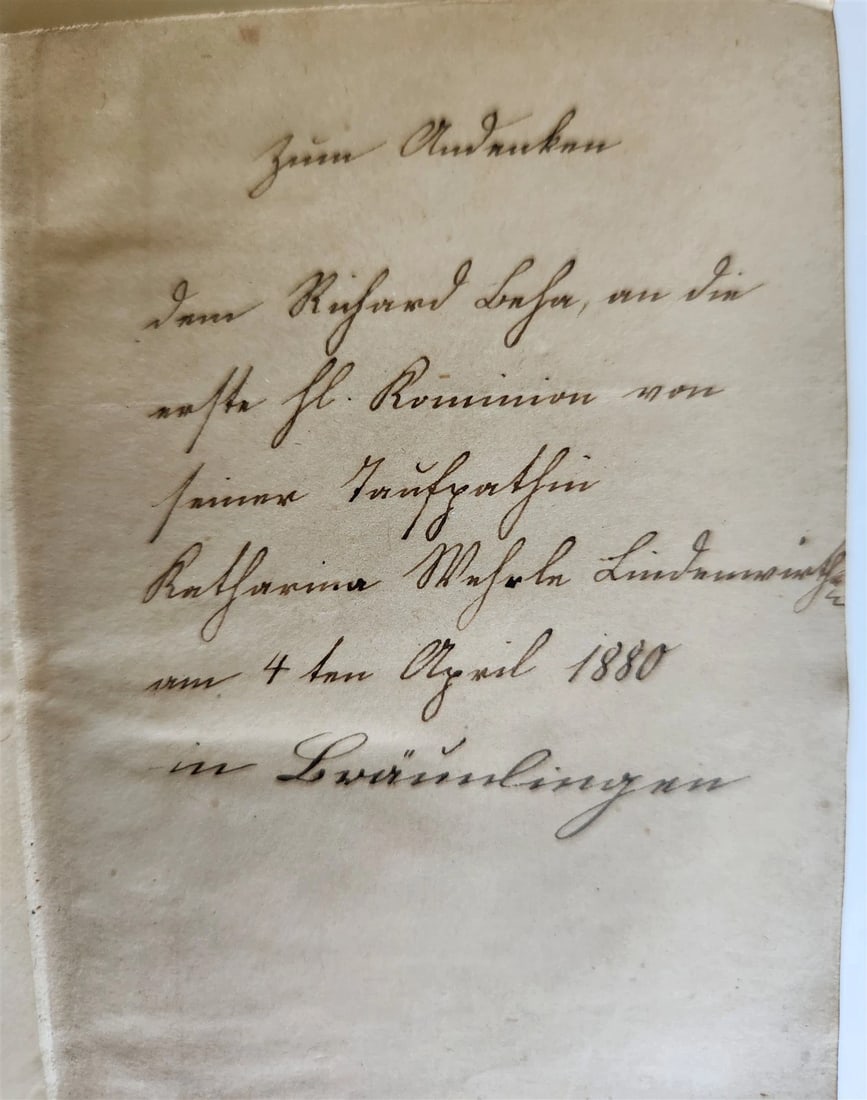 Zum Andenken
dem Richard Beha, an die
erste hl. Kommnion von
seiner Taufpathin
Katharina Wehrle Lindenwirthin
am 4 ten April 1880
in Bräunlingen